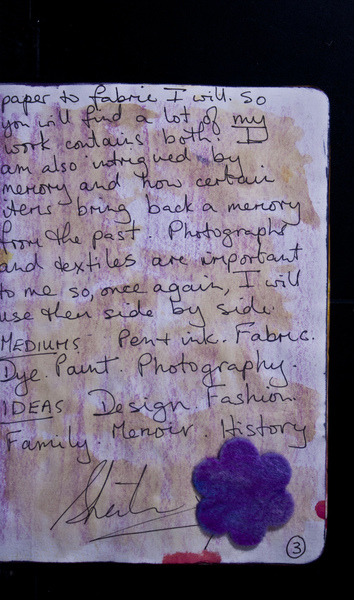 paper to fabric I will. So
you will find a lot of my
work contains both. I
am also intrigued by
memory and how certain
items bring back a memory
from the past. Photographs
and textiles are important
to me so, once again, I will
use then side by side.
MEDIUMS Pen + ink. Fabric.
Dye Paint. Photography.
IDEAS Design. Fashion.
Family. Memoir. History
3